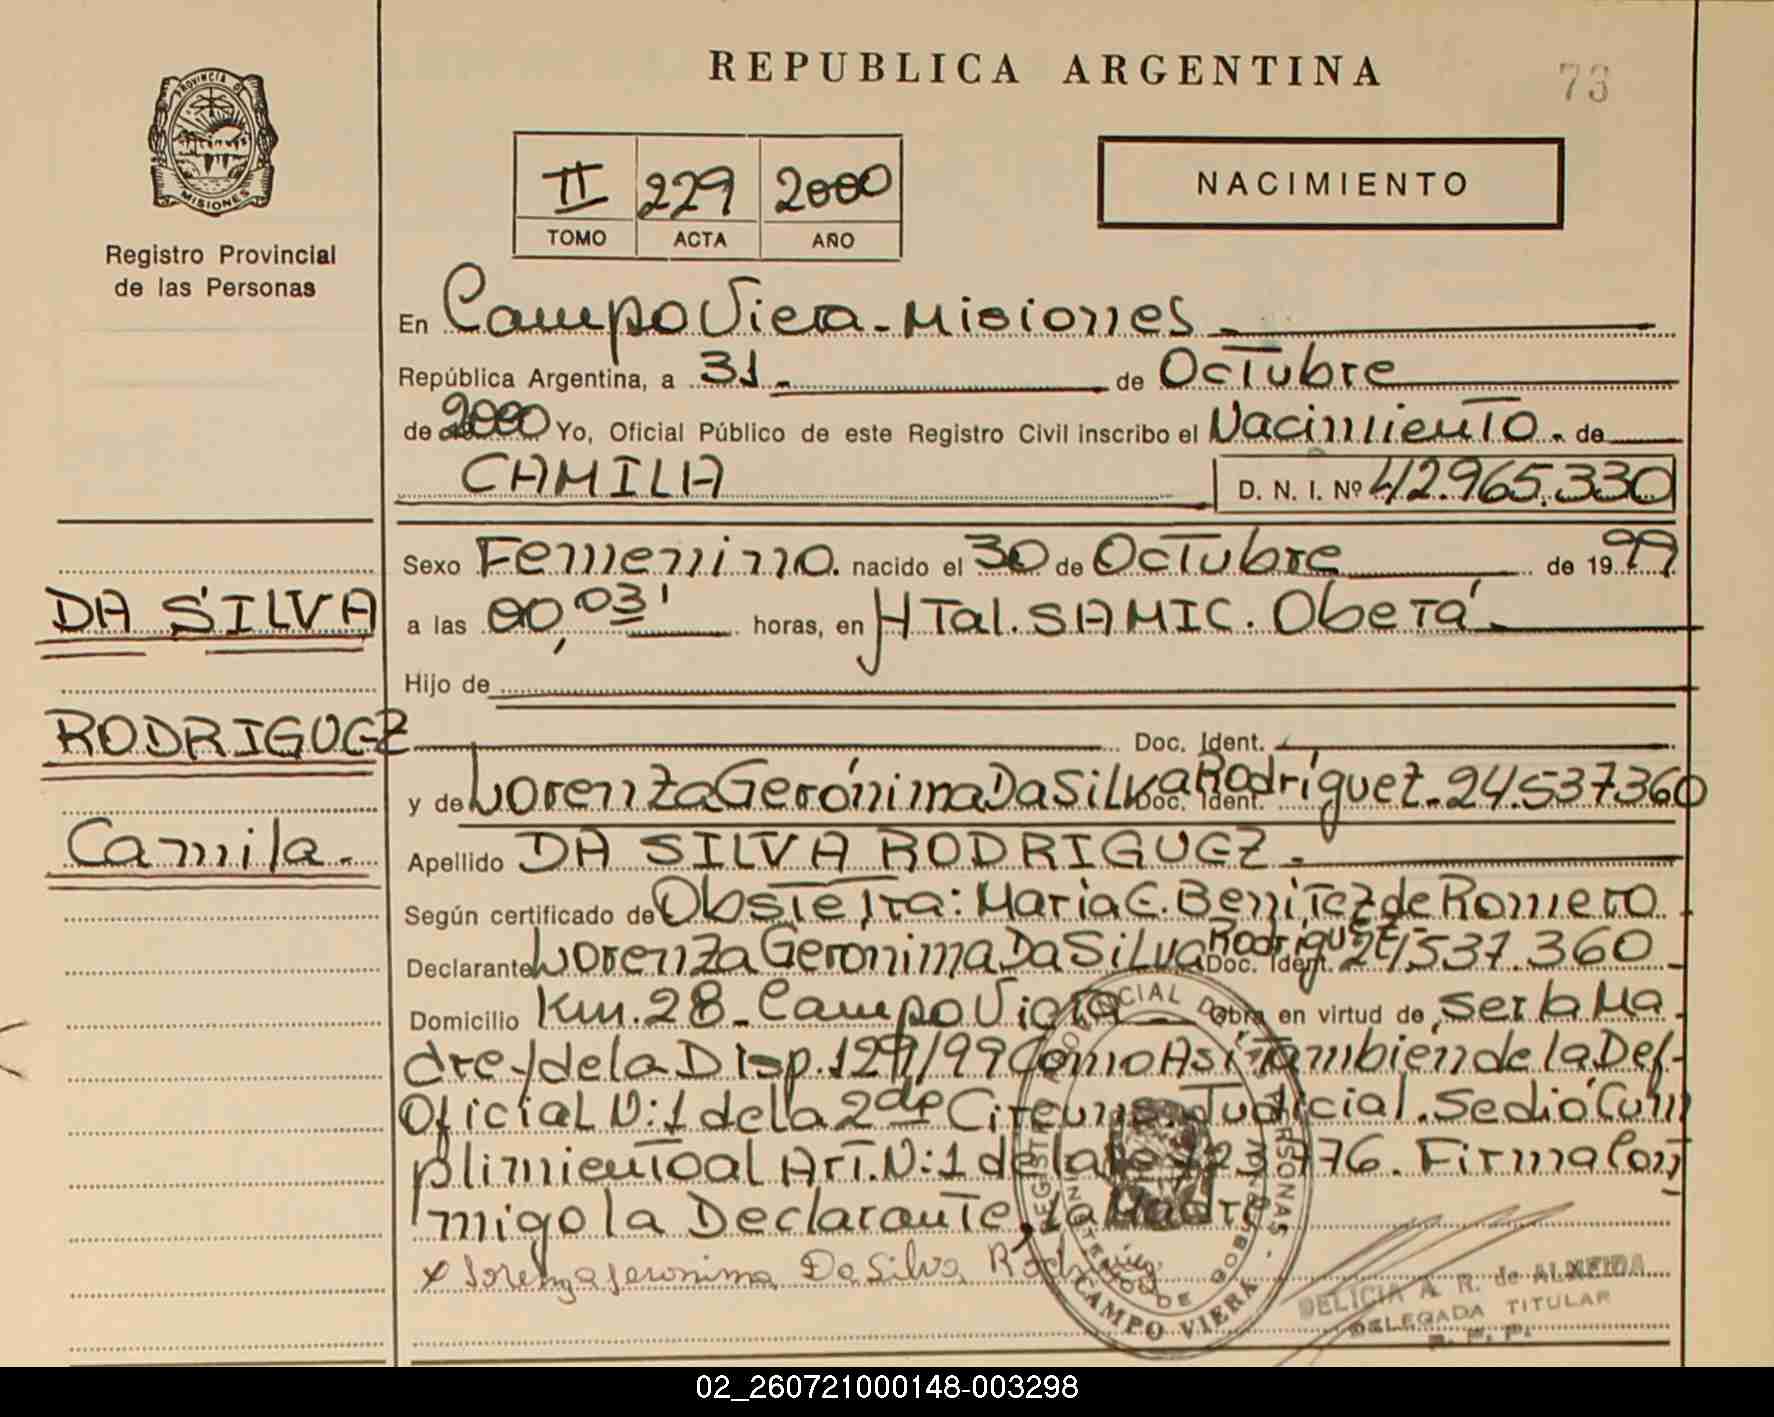 REPUBLICA ARGENTINA
73
PROVINCIA DE MISIONES
Registro Provincial
de las Personas
II 229 2000
TOMO ACTA AÑO
NACIMIENTO
En Campo Viera - Misiones
República Argentina, a 31 - de Octubre
de 2000 Yo, Oficial Público de este Registro Civil inscribo el Nacimiento - de
CAMILA D. N. I. Nº 42.965.330
Sexo Femenino. nacido el 30 de Octubre de 1999
DA SILVA
a las 00,03' horas, en HTal. SAMIC. Oberá -
Hijo de
RODRIGUEZ
Doc. Ident.
y de Lorenza Gerónima Da Silva Rodríguez - Doc. Ident. 24.537.360
Camila.
Apellido DA SILVA RODRIGUEZ -
Según certificado de Obstetra: Maria E. Benitez de Romero
Declarante Lorenza Geronima Da Silva Rodríguez - Doc. Ident. 24537.360
Domicilio Km. 28 - Campo Viera - Obra en virtud de ser la Ma
dre y de la Disp. 129/99 Como Asi Tambien de la Def-
Oficial N:1 de la 2da Circuns. Judicial. Se dió Cum
plimiento al Art. N:1 de la 23.776. Firma Con
migo la Declarante, la Madre.
x Lorenza Jeronima Da Silva Rodriguez
REGISTRO PROVINCIAL DE LAS PERSONAS
MINISTERIO DE GOBIERNO
CAMPO VIERA
DELICIA A. R. de ALMEIDA
DELEGADA TITULAR
R. P. P.
02_260721000148-003298